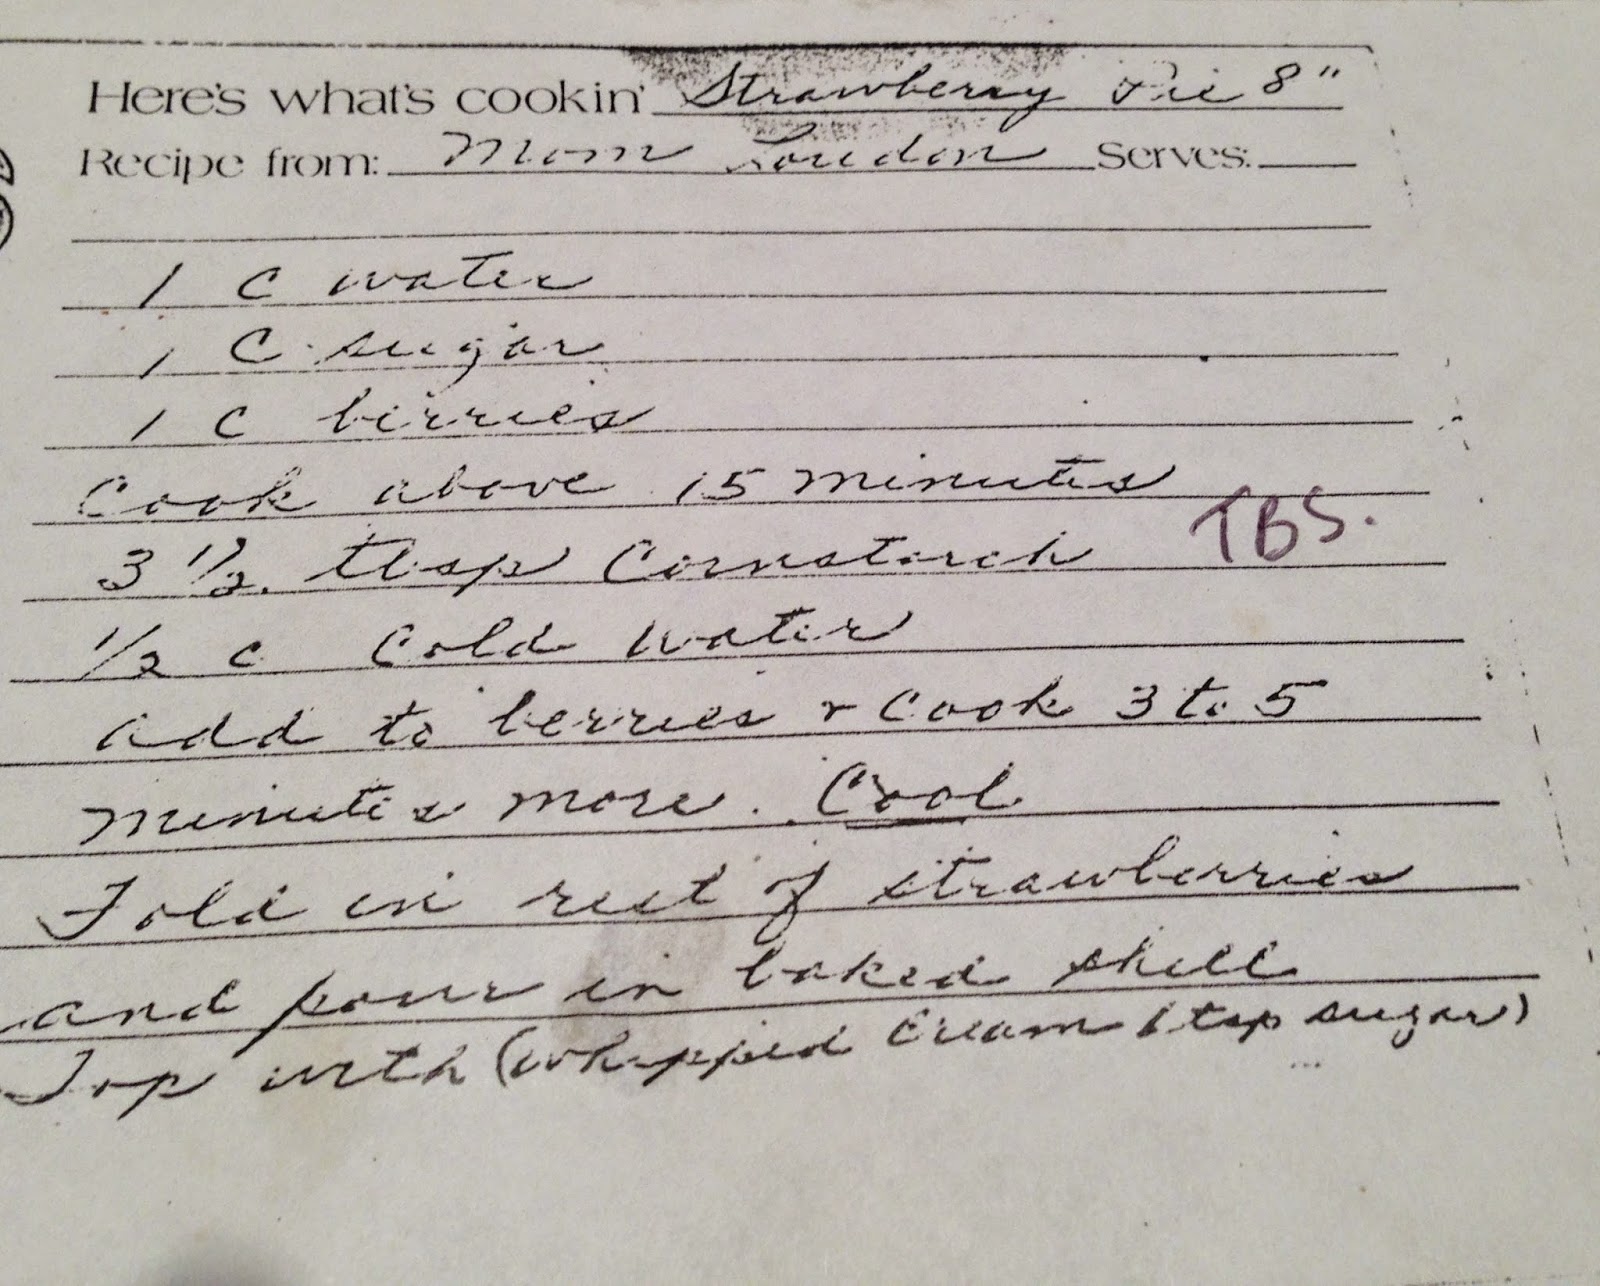 Here's what's cookin' Strawberry Pie 8"
Recipe from: Mom Loudon Serves:
1 C water
1 C. sugar
1 C berries
Cook above 15 minutes
3 1/2 tbsp Cornstarch TBS.
1/2 c Cold water
add to berries + Cook 3 to 5
minutes more. Cool
Fold in rest of strawberries
and pour in baked shell
Top with (whipped cream 1 tsp sugar)